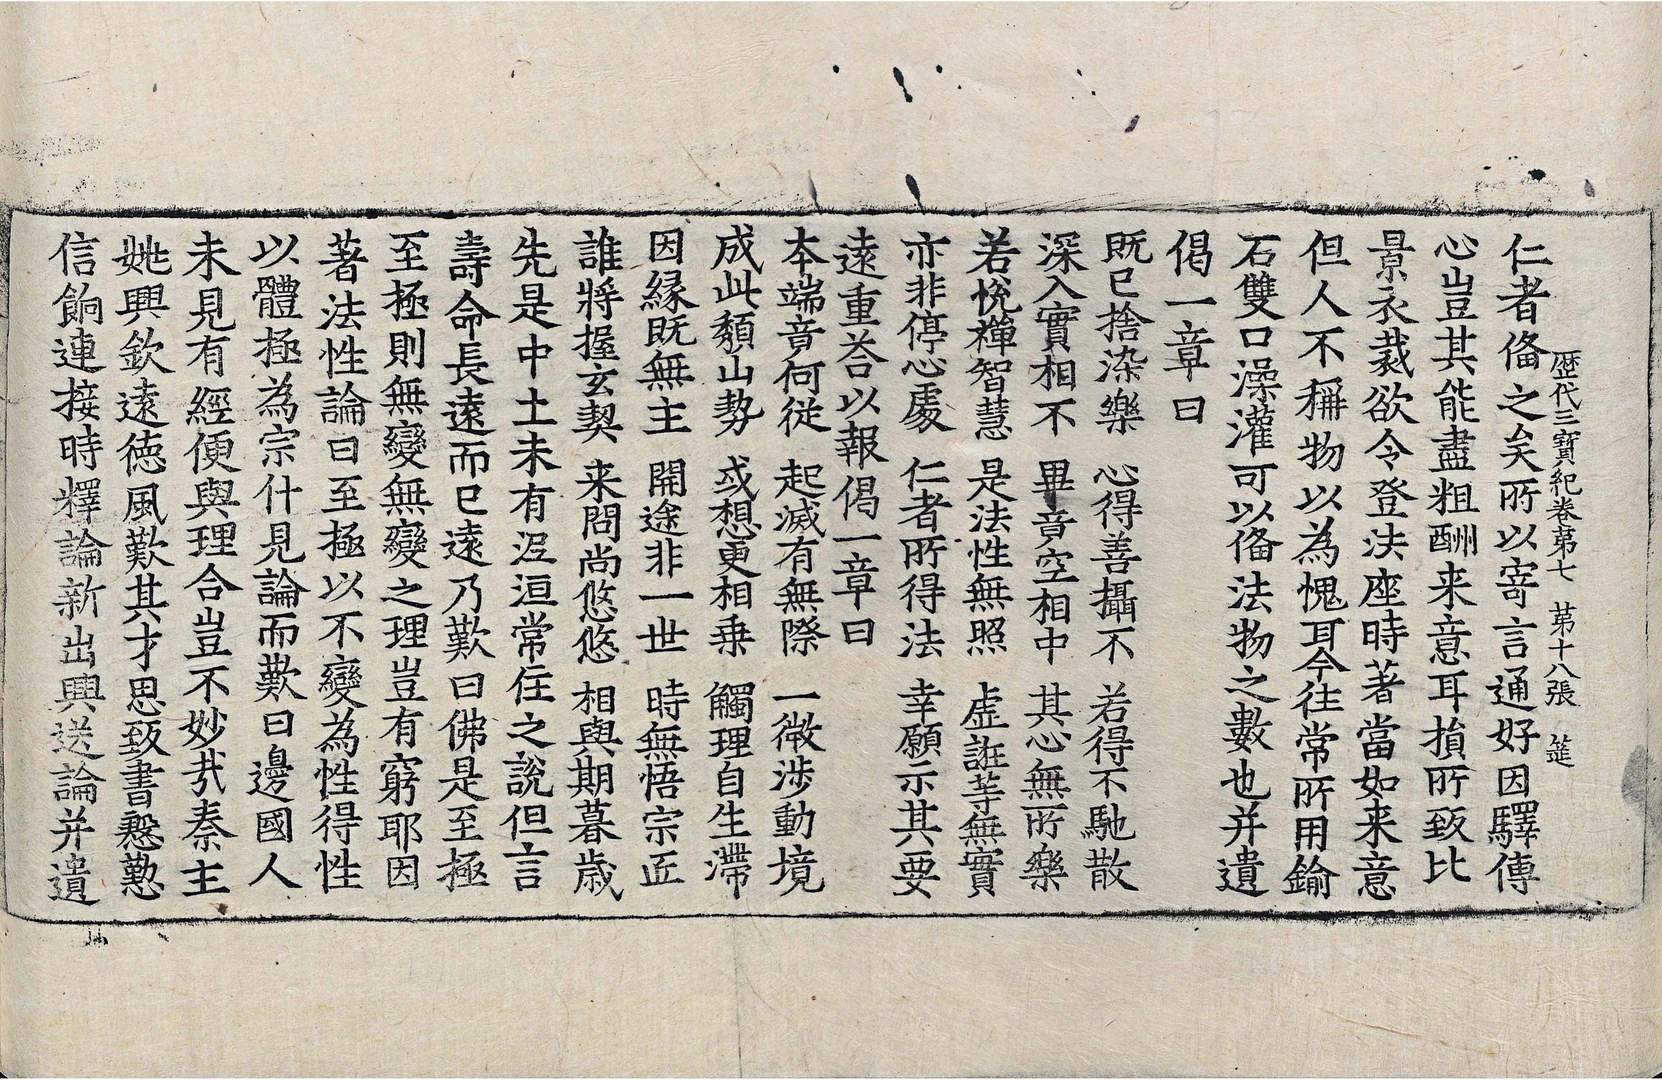 歷代三寶紀卷第七　第十八張　筵
仁者俻之矣所以寄言通好因驛傳
心豈其能盡粗酬来意耳損所致比
景衣裁欲令登法座時著當如来意
但人不稱物以為愧耳今往常所用鍮
石雙口澡灌可以俻法物之數也并遺
偈一章曰
既已捨染樂　心得善攝不　若得不馳散
深入實相不　畢竟空相中　其心無所樂
若悅禪智慧　是法性無照　虛誑等無實
亦非停心處　仁者所得法　幸願示其要
遠重荅以報偈一章曰
本端竟何従　起滅有無際　一微涉動境
成此頹山勢　或想更相乗　觸理自生滯
因緣既無主　開途非一世　時無悟宗匠
誰將握玄契　来問尚悠悠　相與期暮歲
先是中土未有泥洹常住之說但言
壽命長遠而已遠乃歎曰佛是至極
至極則無變無變之理豈有窮耶因
著法性論曰至極以不變為性得性
以體極為宗什見論而歎曰邊國人
未見有經便與理合豈不妙哉秦主
姚興欽遠德風歎其才思致書慇懃
信餉連接時釋論新出興送論并遺